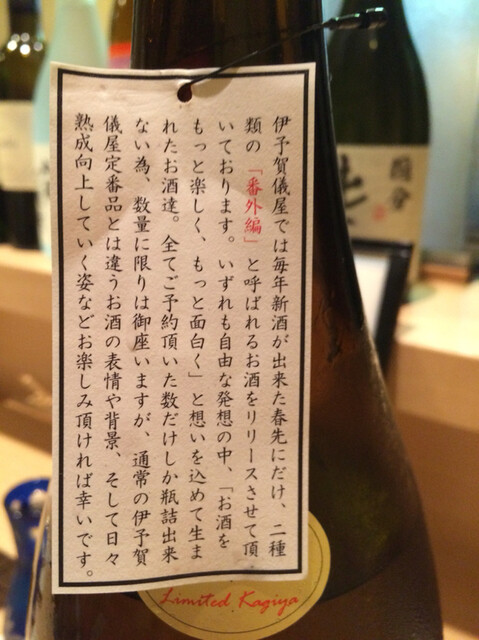 伊予賀儀屋では毎年新酒が出来た春先にだけ、二種
類の「番外編」と呼ばれるお酒をリリースさせて頂
いております。いずれも自由な発想の中、「お酒を
もっと楽しく、もっと面白く」と想いを込めて生ま
れたお酒達。全てご予約頂いた数だけしか瓶詰出来
ない為、数量に限りは御座いますが、通常の伊予賀
儀屋定番品とは違うお酒の表情や背景、そして日々
熟成向上していく姿などお楽しみ頂ければ幸いです。
Limited Kagiya
國分